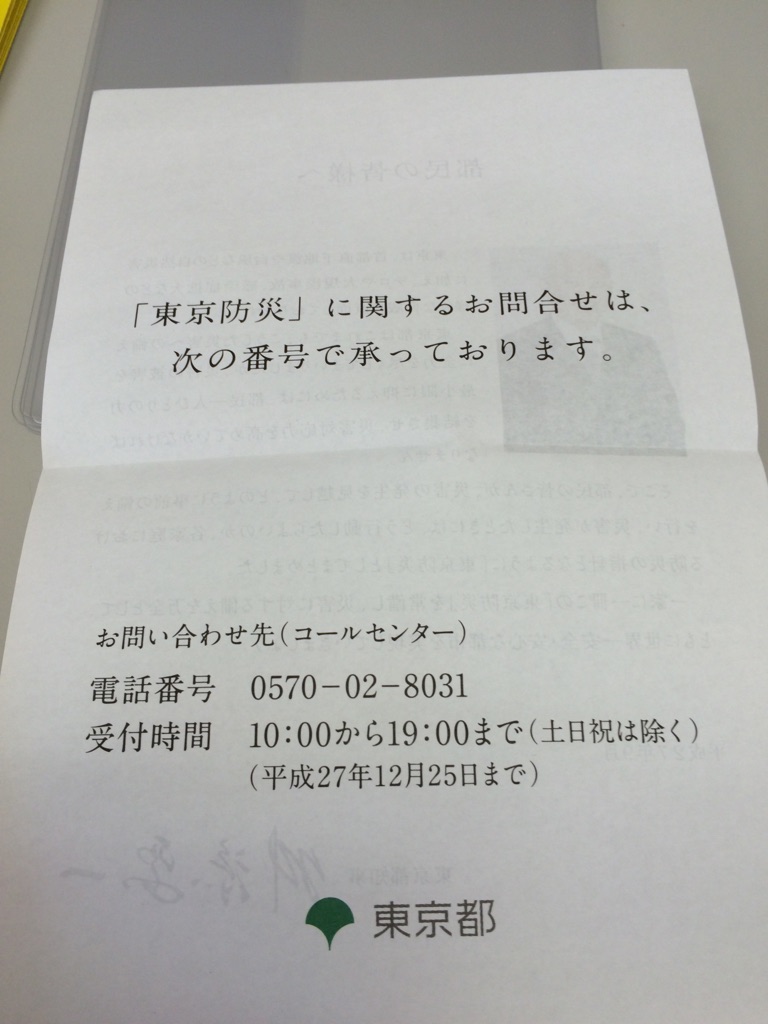 「東京防災」に関するお問合せは、
次の番号で承っております。
お問い合わせ先(コールセンター)
電話番号　0570−02−8031
受付時間　10:00から19:00まで(土日祝は除く)
(平成27年12月25日まで)
東京都